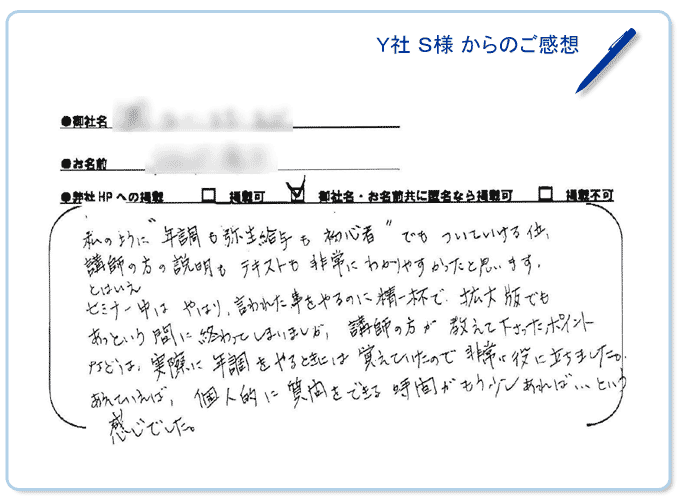 Y社 S様 からのご感想
●御社名
●お名前
●弊社HPへの掲載 □ 掲載可 ☑ 御社名・お名前共に匿名なら掲載可 □ 掲載不可
私のように"年調も弥生給与も初心者"でもついていける位、
講師の方の説明もテキストも非常にわかりやすかったと思います。
とはいえ
セミナー中はやはり、言われた事をやるのに精一杯で、拡大版でも
あっという間に終わってしまいましたが、講師の方が教えて下さったポイント
などは、実際に年調をやるときには覚えていたので非常に役に立ちました。
あえていえば、個人的に質問をできる時間がもう少しあれば…という
感じでした。